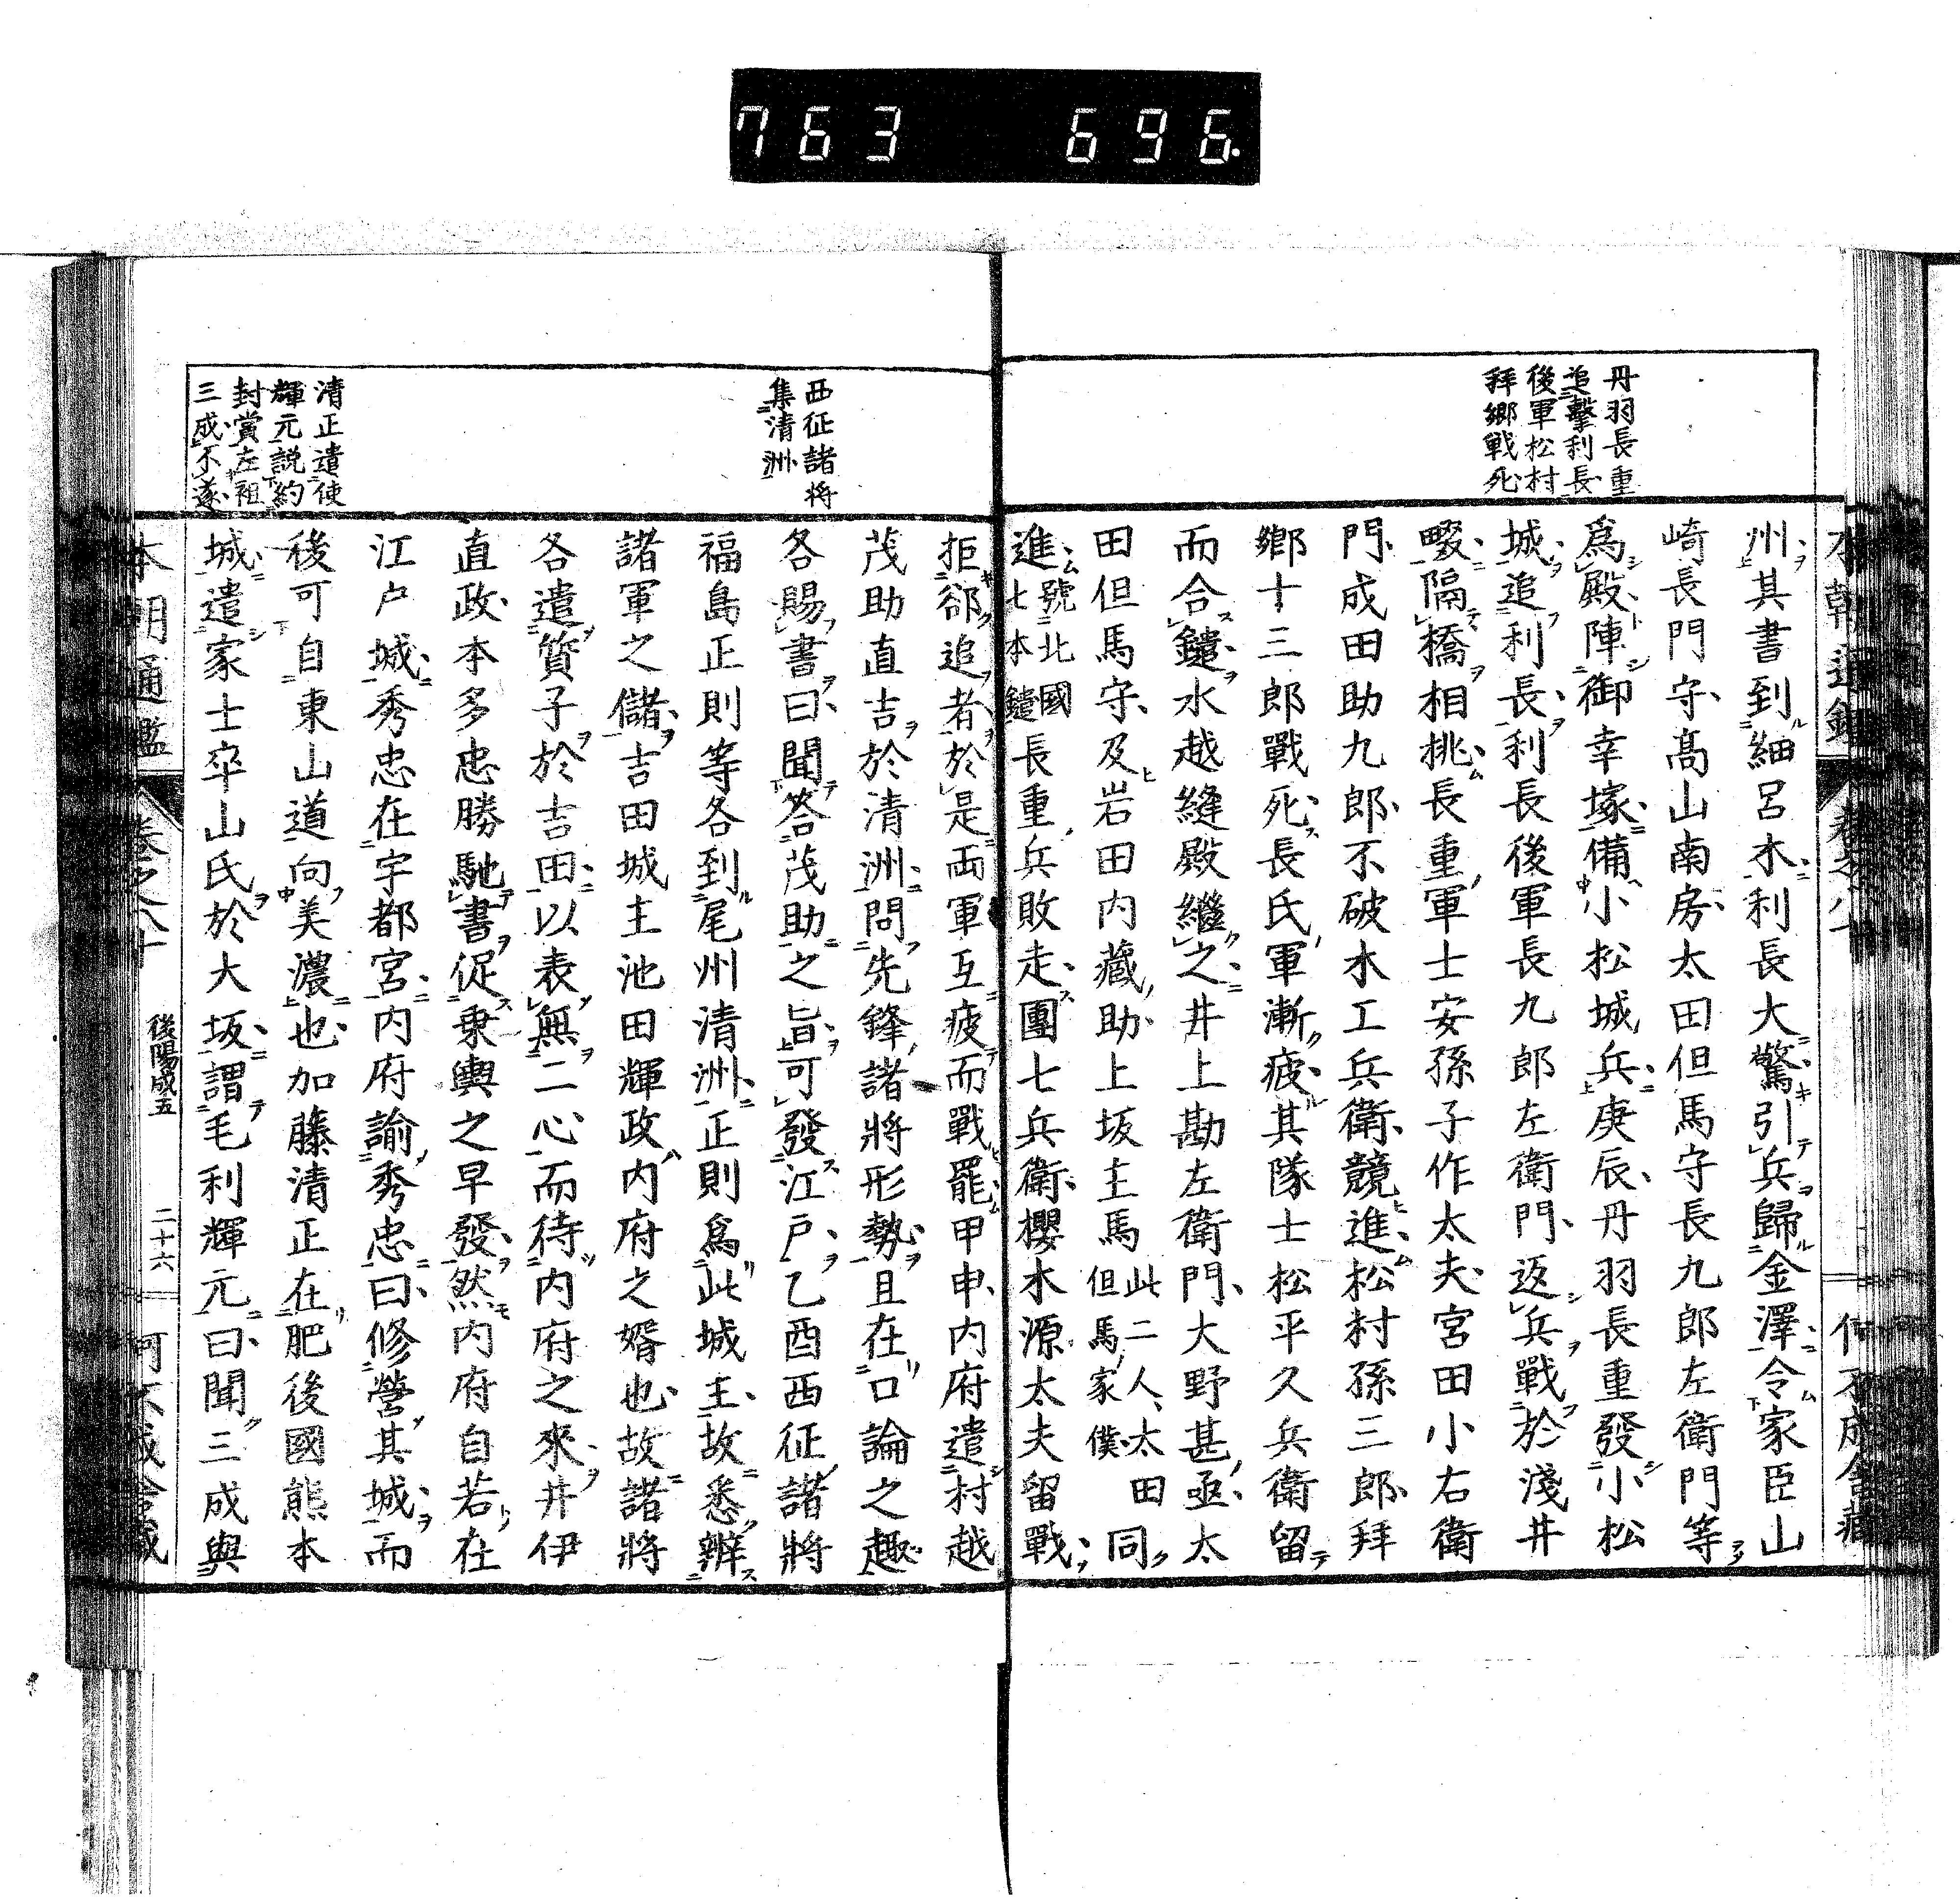 763 696.
丹羽長重
追擊利長
後軍松村
拜鄉戰死
州其書到細呂木利長大驚引兵歸金澤令家臣山
崎長門守髙山南房太田但馬守長九郎左衛門等
爲殿陣御幸塚備小松城兵庚辰丹羽長重發小松
城追利長利長後軍長九郎左衛門返兵戰於淺井
畷隔橋相挑長重軍士安孫子作太夫宮田小右衛
門成田助九郎不破木工兵衛競進松村孫三郎拜
鄉十三郎戰死長氏軍漸疲其隊士松平久兵衛留
而合鑓水越縫殿繼之井上勘左衛門大野甚亟太
田但馬守及岩田内藏助上坂主馬此二人太田但馬家僕同
進號北國七本鑓長重兵敗走團七兵衛櫻木源太夫留戰
西征諸将
集清洲
清正遣使
輝元説約
封賞左袒
三成不遂
拒郤追者於是両軍互疲而戰罷甲申内府遣村越
茂助直吉於清洲問先鋒諸將形勢且在口論之趣
各賜書曰聞答茂助之旨可發江戶乙酉西征諸將
福島正則等各到尾州清洲正則爲此城主故悉辦
諸軍之儲吉田城主池田輝政内府之婿也故諸將
各遣質子於吉田以表無二心而待内府之來井伊
直政本多忠勝馳書促乗輿之早發然内府自若在
江戶城秀忠在宇都宮内府諭秀忠曰修營其城而
後可自東山道向美濃也加藤清正在肥後國熊本
城遣家士卒山氏於大坂謂毛利輝元曰聞三成與
本朝通鑑 卷之八十 後陽成五 二十六